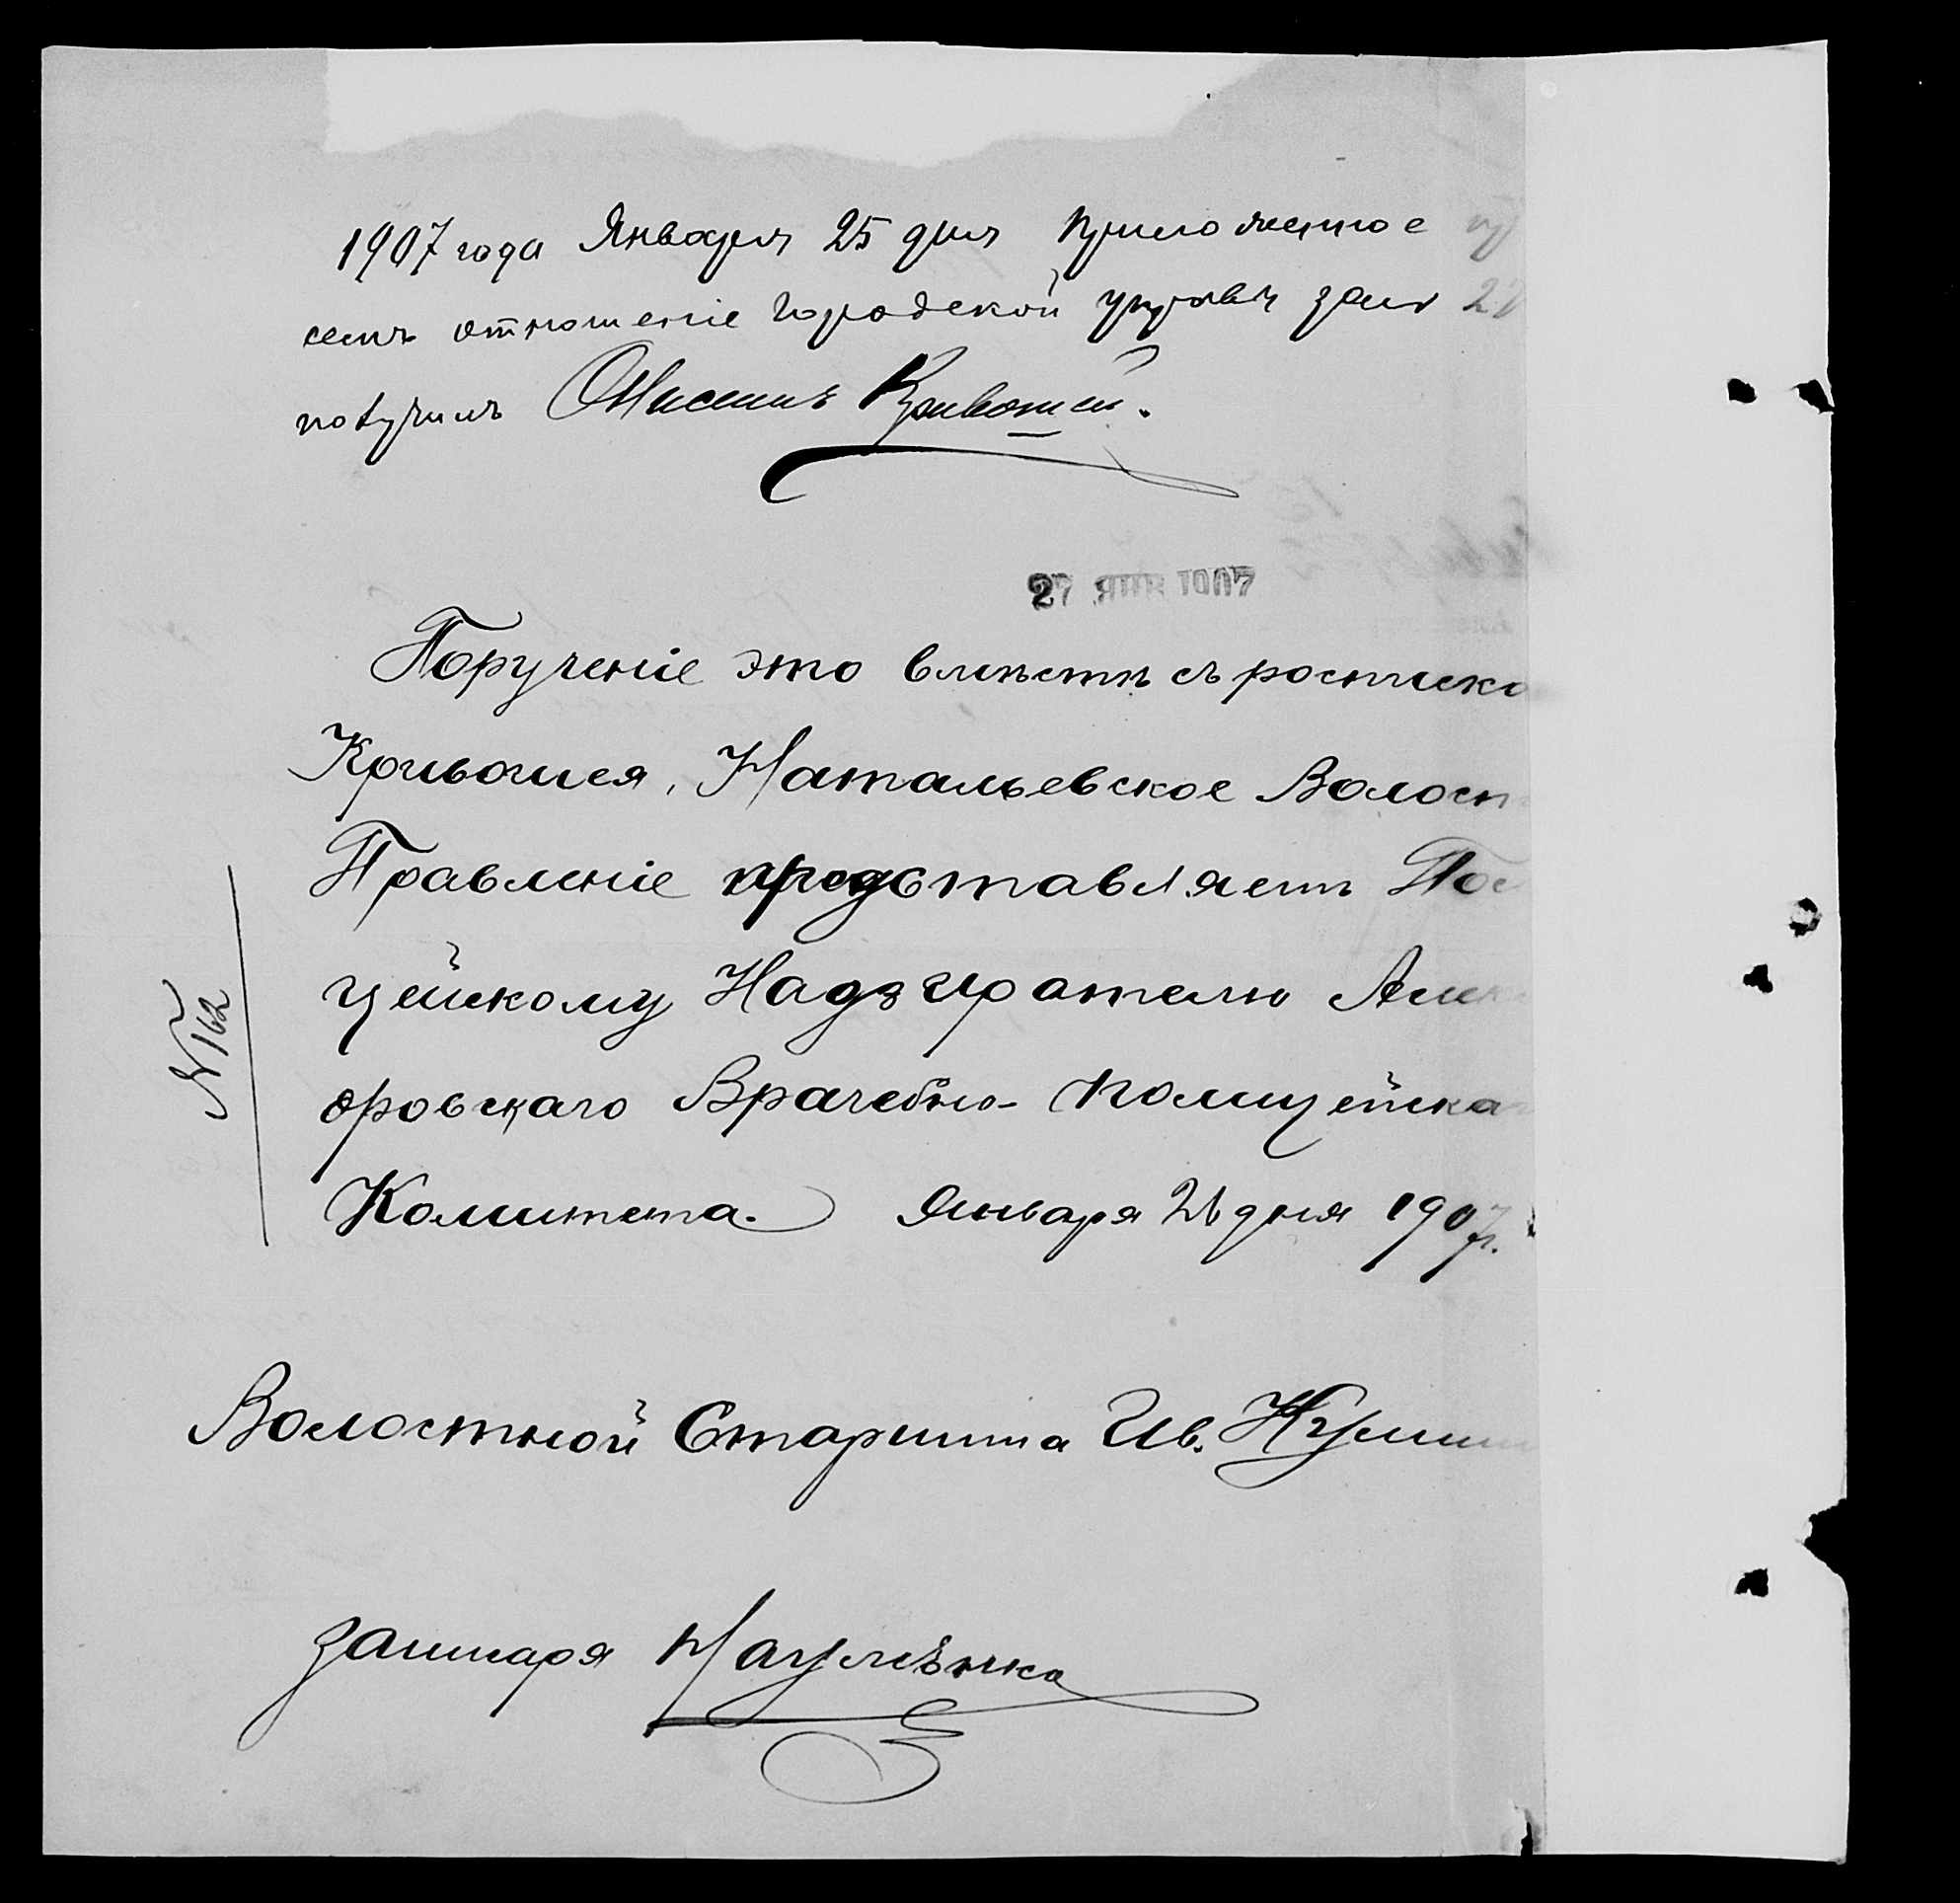 1907 года Января 25 дня приложенное
семъ отношеніе городской управы за №
получилъ Кривошей.
27 ЯНВ 1907
Порученіе это вмѣстѣ съ росписко
Кривошея, Натальевское Волост
Правленіе представляетъ Пол
цейскому Надзирателю Алек
дровскаго Врачебно-полицейска
Комитета. Января 26 дня 1907 г.
№ 162
Волостной Старшина Ив.
За писаря Науменко